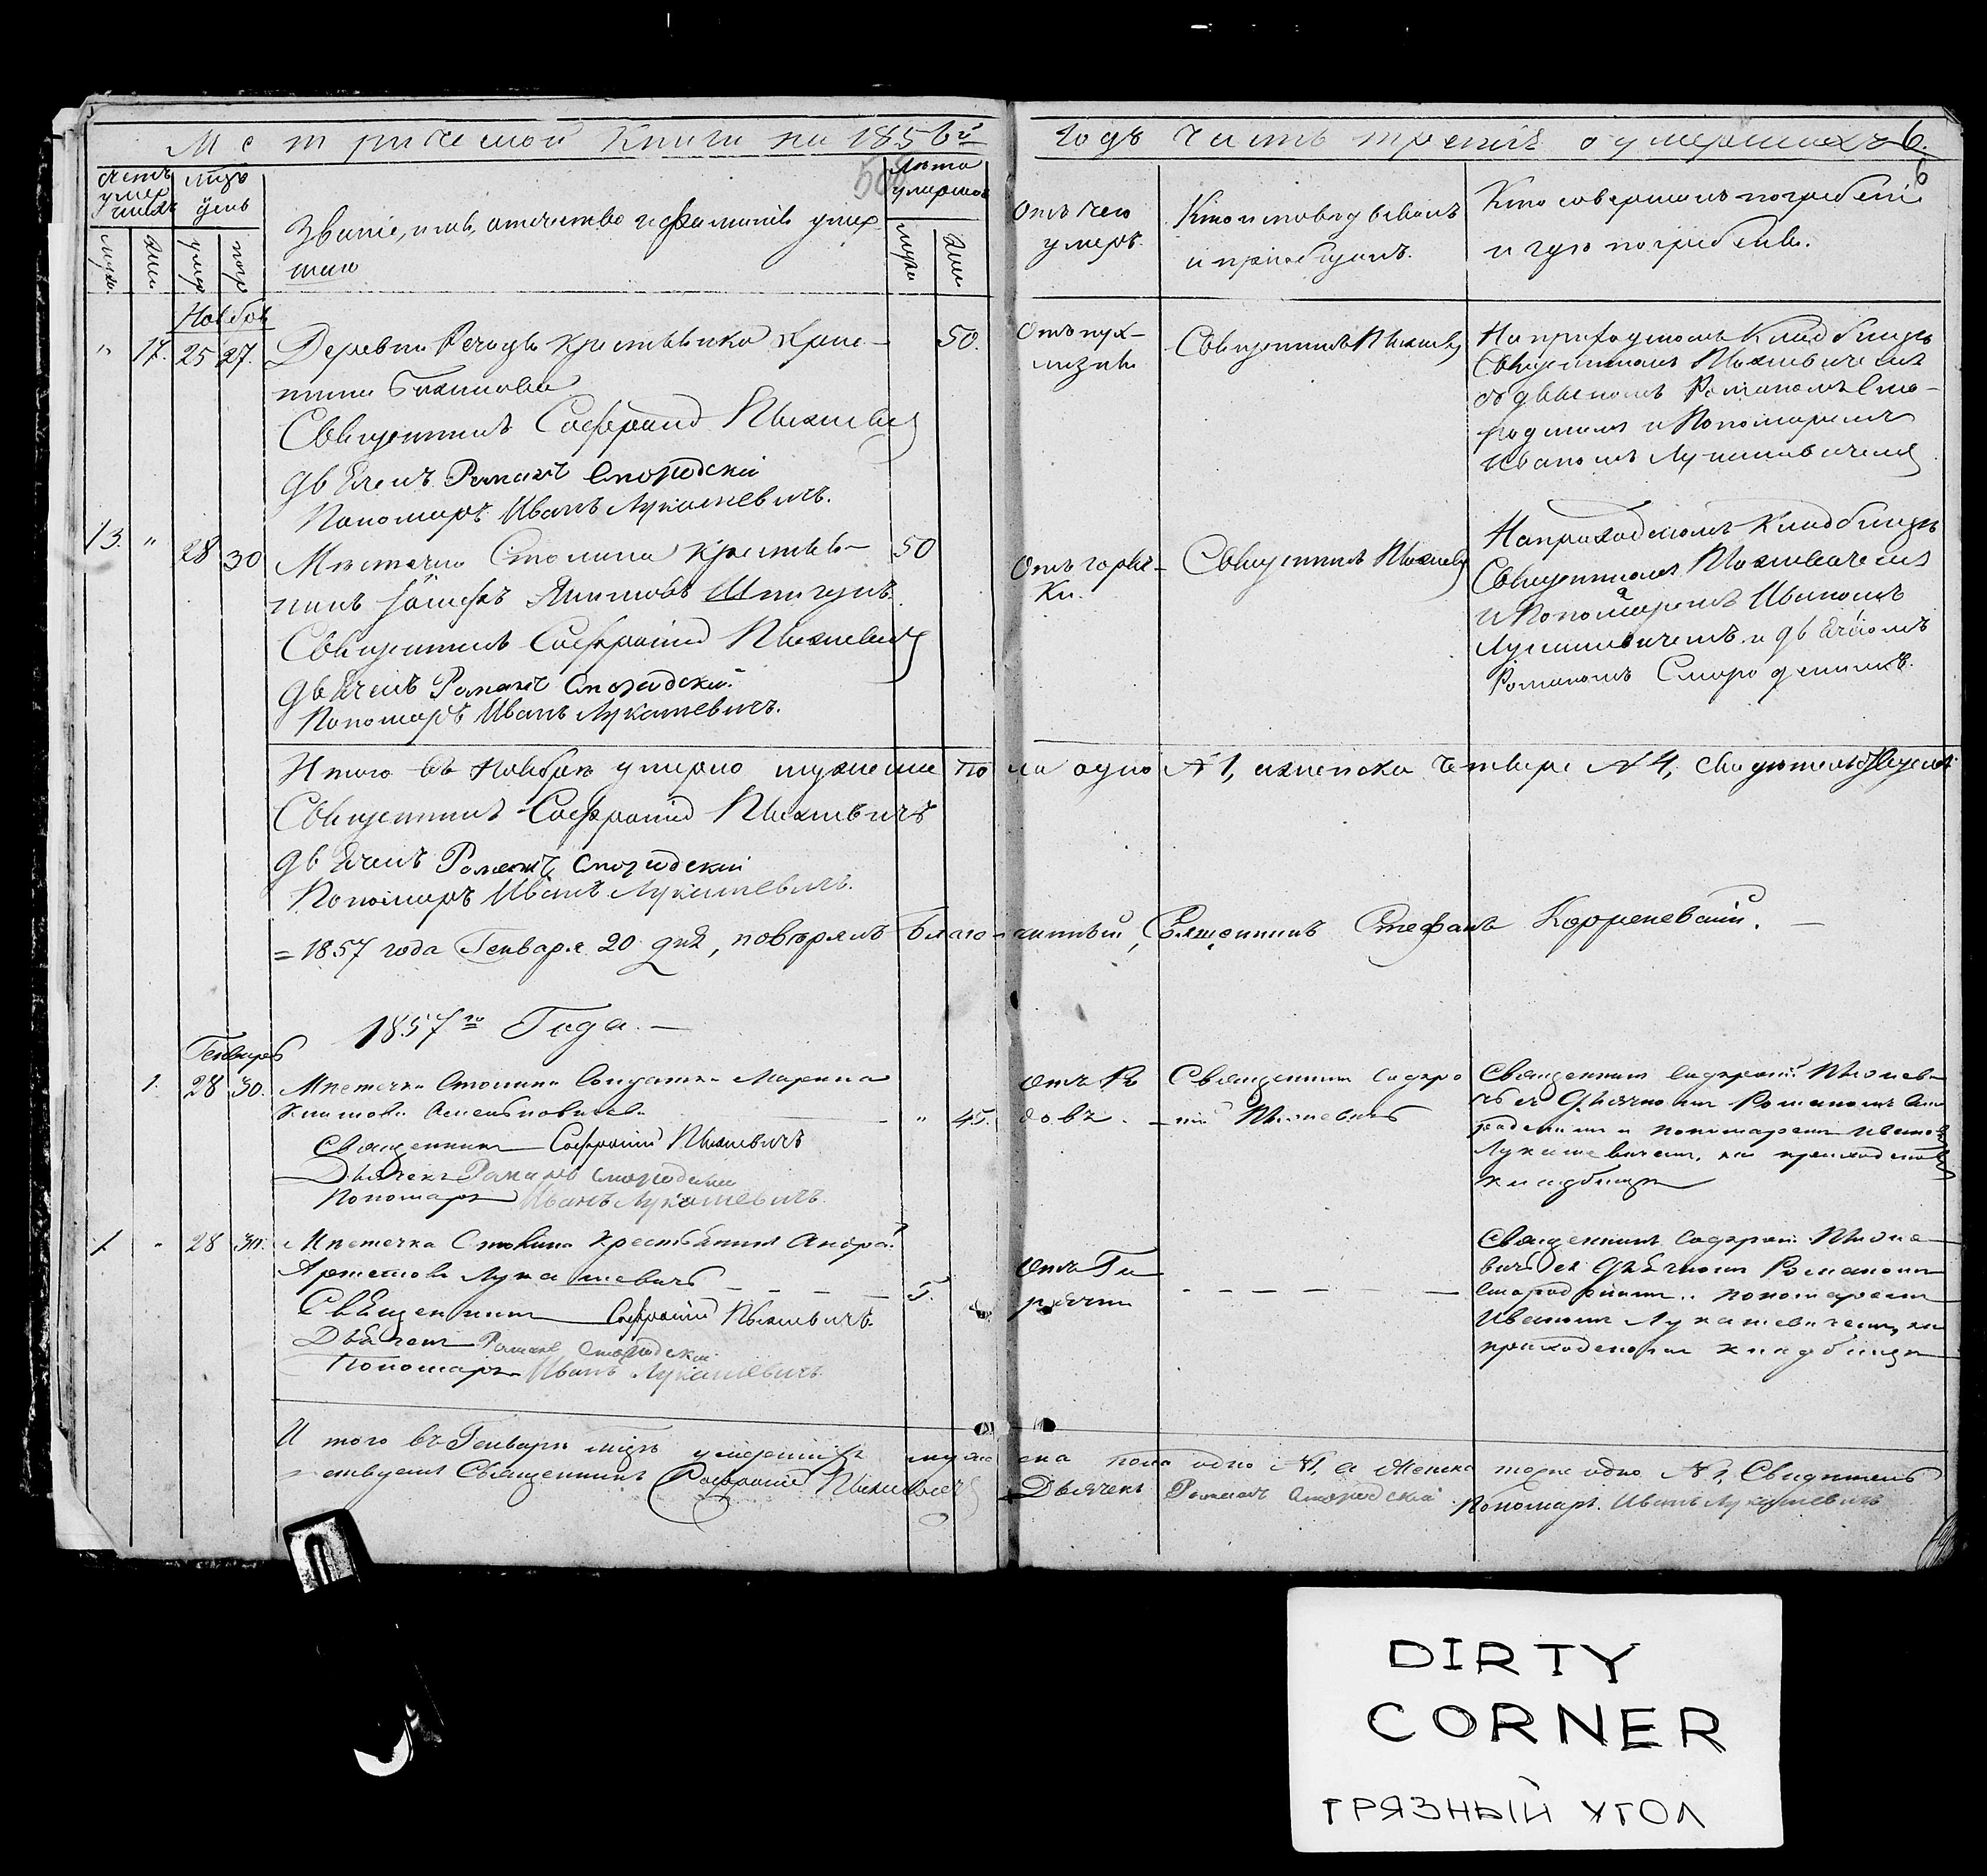 Метрической Книги на 1856й годъ часть третія о умершихъ 6.
6
508
Счетъ умершихъ
Мѣсяцъ и день
Звание, имя, отчество и фамилія умер
шаго
Лѣта умершаго
Отъ чего
умеръ.
Кто исповѣдывалъ
и пріобщалъ.
Кто совершалъ погребеніе
и гдѣ погребены.
Ноябрь
" 17. 25 27. Деревни Речицы крестьянка Хрис-
50.
Священникъ Софроній Пѣхневичъ
дьячекъ Романъ Смородскій
Пономарь Иванъ Лукашевичъ.
Священникъ Пѣхневичъ
На приходскомъ Кладбищѣ
Священникомъ Пѣхневичемъ
съ дьячкомъ Романомъ Смо-
родскимъ и Пономаремъ
Иваномъ Лукашевичемъ
13. " 28 30 Мѣстечка Столина крестья-
нинъ Іосифъ
50
Священникъ Софроній Пѣхневичъ
дьячекъ Романъ Смородскій.
Пономарь Иванъ Лукашевичъ.
Отъ горяч-
ки.
Священникъ Пѣхневичъ
На приходскомъ Кладбищѣ
Священникомъ Пѣхневичемъ
и Пономаремъ Иваномъ
Лукашевичемъ и дьячкомъ
Романомъ Смородскимъ.
Итого въ Ноябрѣ умерло мужеска пола одно № 1, женска четыре № 4, свидѣтельствуемъ
Священникъ Софроній Пѣхневичъ
дьячекъ Романъ Смородскій
Пономарь Иванъ Лукашевичъ.
= 1857 года Генваря 20 дня, повѣрялъ Благочинный, Священникъ Стефанъ
1857го Года. —
Генварь
1. 28 30. Мѣстечка Столина Солдатка Марина
" 45.
Священникъ Софроній Пѣхневичъ
Дьячекъ Романъ Смородскій
Пономарь Иванъ Лукашевичъ.
Отъ Ро
довъ.
Священникъ Софро
ній Пѣхневичъ
Священникъ Софроній Пѣхневи-
чъ съ Дьячкомъ Романомъ Смо
родскимъ и пономаремъ Ивано
Лукашевичемъ, на приходском
кладбищѣ
1 " 28 30. Мѣстечка Столина Крестьянинъ Андрей
Артемовъ Лукашевичъ
5.
Священникъ Софроній Пѣхневичъ.
Дьячекъ Романъ Смородскій
Пономарь Иванъ Лукашевичъ
Отъ Го
рячки
Священникъ Софроній Пѣхне-
вичъ съ Дьячкомъ Романомъ
Смородскимъ и пономаремъ
Иваномъ Лукашевичемъ, на
приходскомъ кладбищѣ
И того въ Генварѣ мцѣ умершихъ мужеска пола одно № 1, а женска тоже одно № 1, Свидѣтель
ствуемъ Священникъ Софроній Пѣхневичъ Дьячекъ Романъ Смородскій Пономарь Иванъ Лукашевичъ
DIRTY
CORNER
ГРЯЗНЫЙ УГОЛ